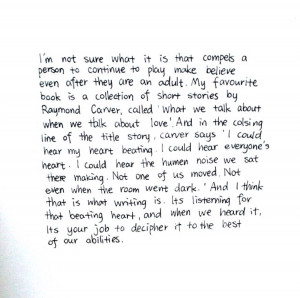 I'm not sure what it is that compels a
person to continue to play make believe
even after they are an adult. My favourite
book is a collection of short stories by
Raymond Carver, called 'What we talk about
when we talk about love'. And in the colsing
line of the title story, Carver says 'I could
hear my heart beating. I could hear everyone's
heart. I could hear the humen noise we sat
there making. Not one of us moved. Not
even when the room went dark.' And I think
that is what writing is. Its listening for
that beating heart, and when we heard it,
Its your job to decipher it to the best
of our abilities.